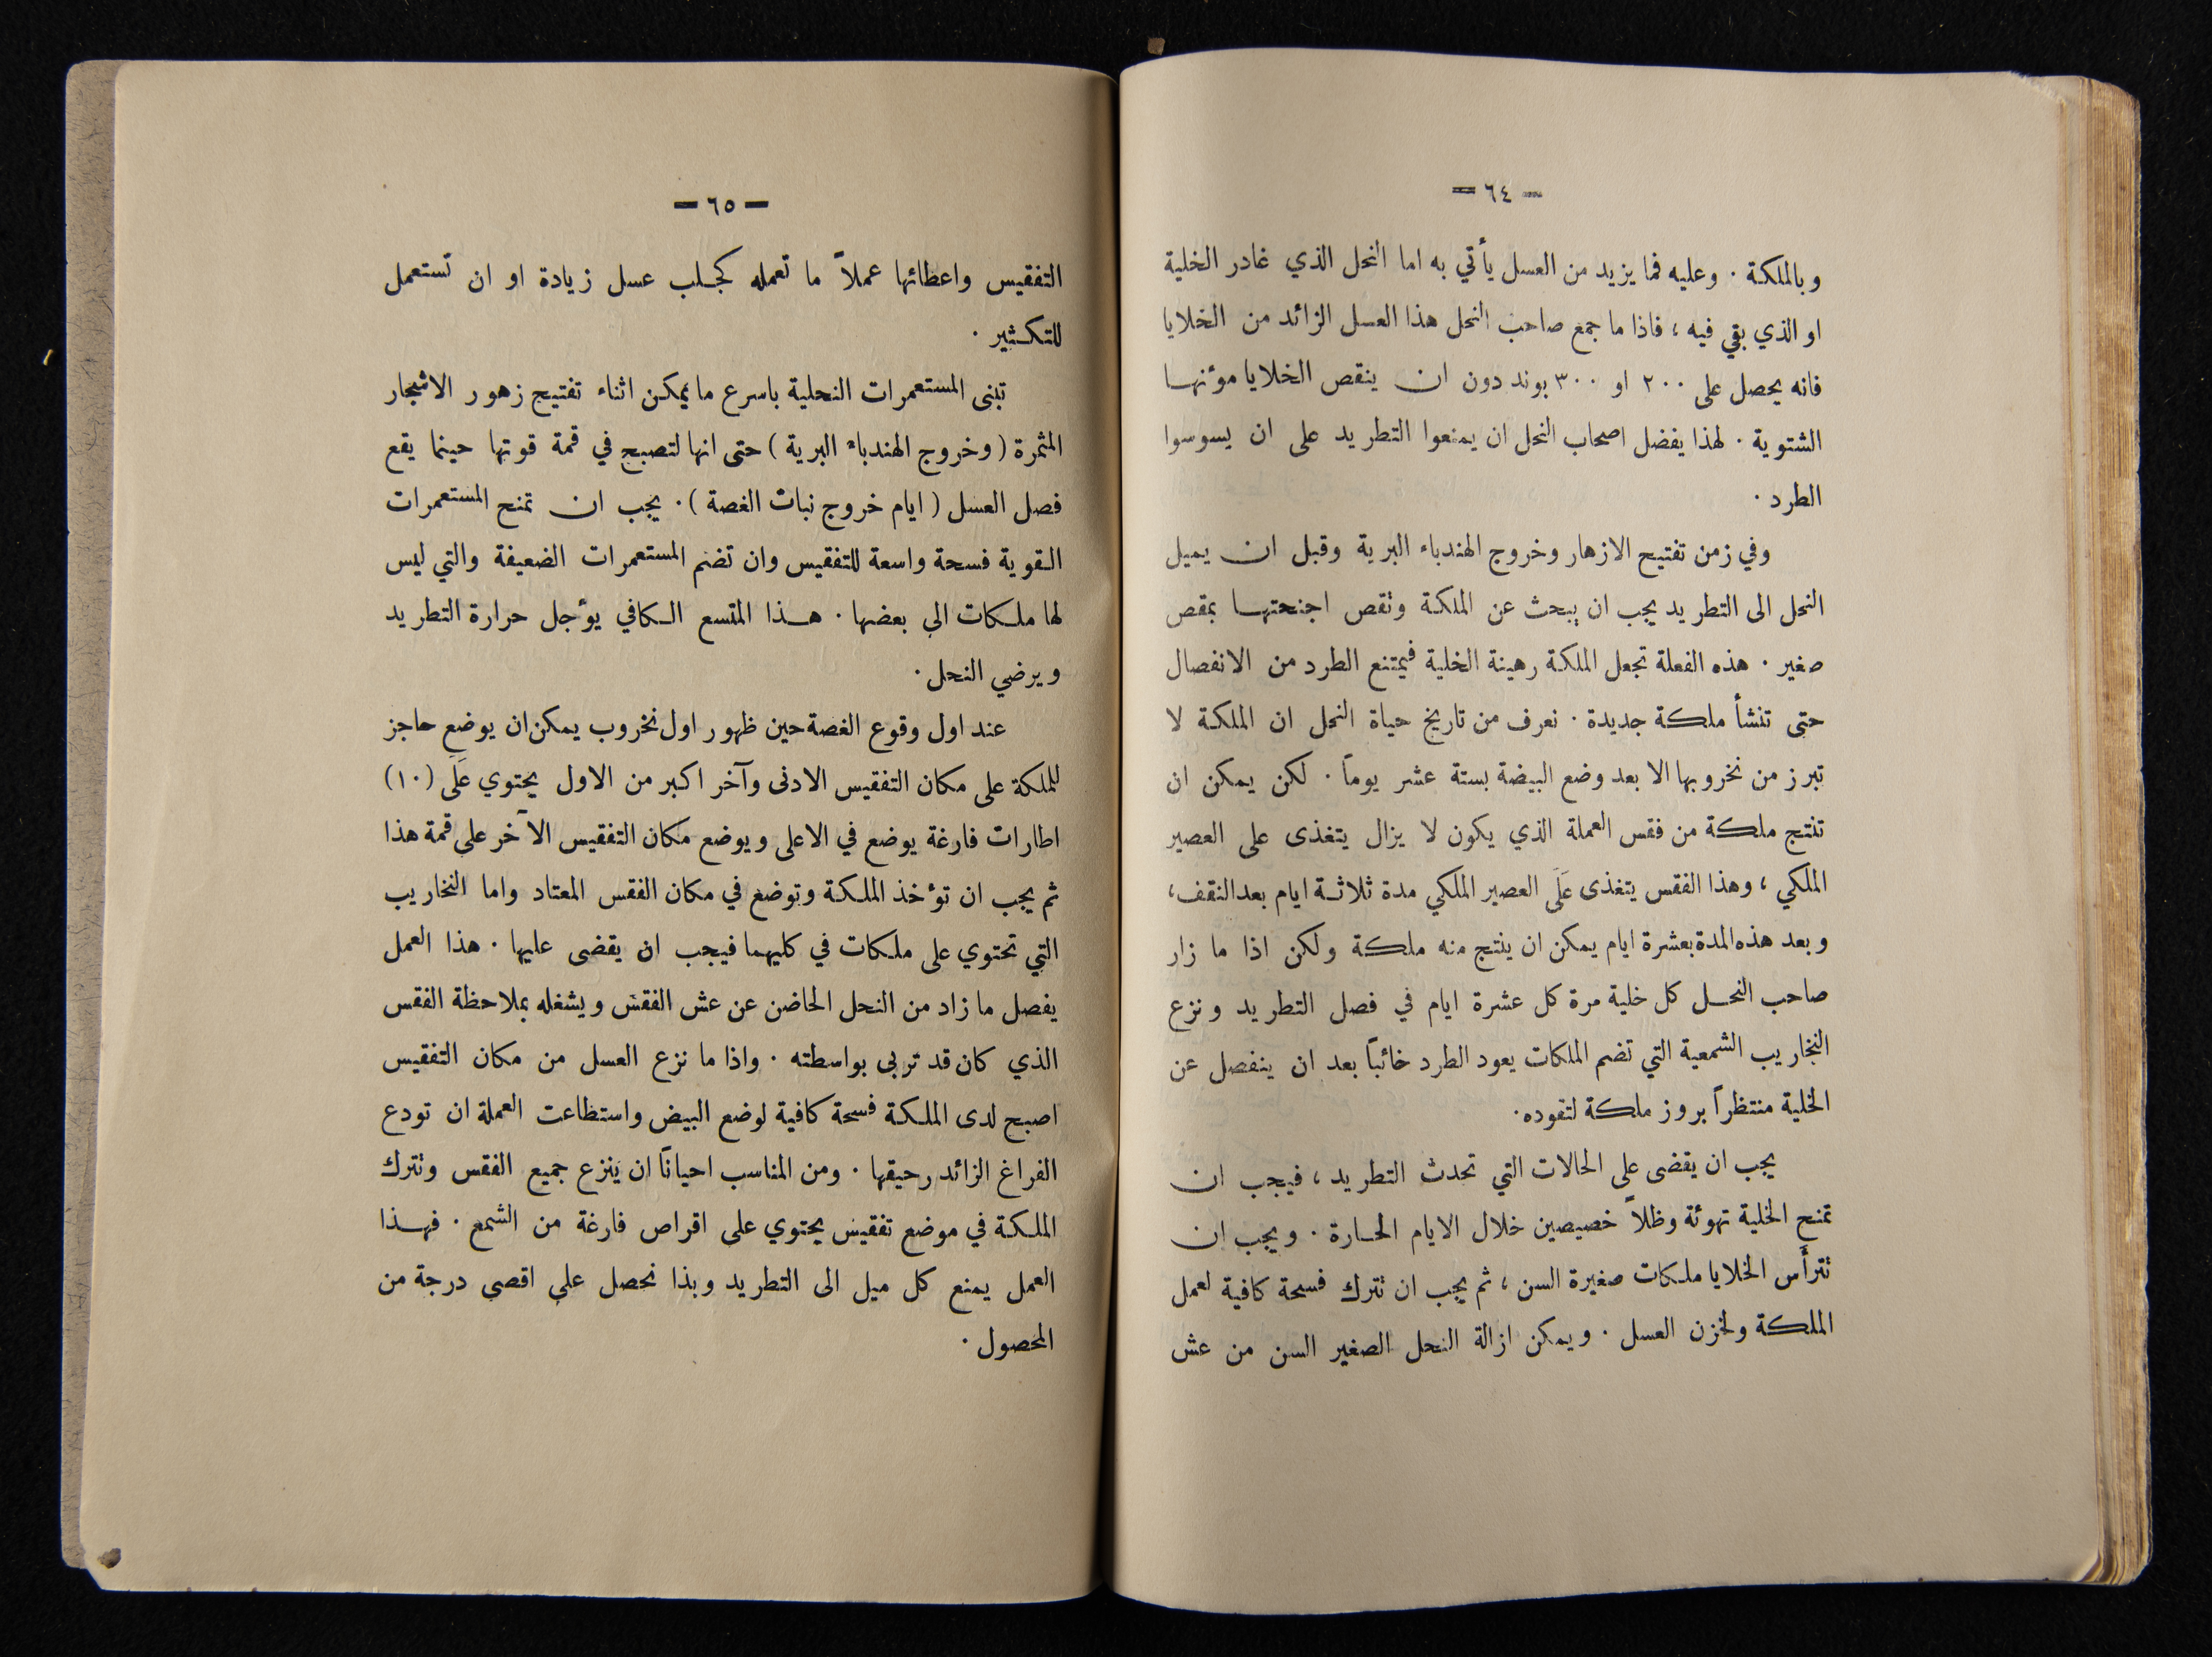 — ٦٤ —
وبالملكة . وعليه فما يزيد من العسل يأتي به اما النحل الذي غادر الخلية
او الذي بقي فيه ، فاذا ما جمع صاحب النحل هذا العسل الزائد من الخلايا
فانه يحصل على ٢٠٠ او ٣٠٠ بوند دون ان ينقص الخلايا مؤنهـا
الشتوية . لهذا يفضل اصحاب النحل ان يمنعوا التطريد على ان يسوسوا
الطرد .
وفي زمن تفتيح الازهار وخروج الهندباء البرية وقبل ان يميل
النحل الى التطريد يجب ان يبحث عن الملكة وتقص اجنحتهـا بمقص
صغير . هذه الفعلة تجعل الملكة رهينة الخلية فيمتنع الطرد من الانفصال
حتى تنشأ ملكة جديدة . نعرف من تاريخ حياة النحل ان الملكة لا
تبرز من نخروبها الا بعد وضع البيضة بستة عشر يوماً . لكن يمكن ان
تنتج ملكة من فقس العملة الذي يكون لا يزال يتغذى على العصير
الملكي ، وهذا الفقس يتغذى عَلَى العصير الملكي مدة ثلاثـة ايام بعد النقف ،
وبعد هذه المدة بعشرة ايام يمكن ان ينتج منه ملكة ولكن اذا ما زار
صاحب النحـل كل خلية مرة كل عشرة ايام في فصل التطريد ونزع
النخاريب الشمعية التي تضم الملكات يعود الطرد خائباً بعد ان ينفصل عن
الخلية منتظراً بروز ملكة لتقوده .
يجب ان يقضى على الحالات التي تحدث التطريد ، فيجب ان
تمنح الخلية تهوئة وظلاً خصيصين خلال الايام الحـارة . ويجب ان
تترأس الخلايا ملكات صغيرة السن ، ثم يجب ان تترك فسحة كافية لعمل
الملكة ولخزن العسل . ويمكن ازالة النحل الصغير السن من عش
— ٦٥ —
التفقيس واعطائها عملاً ما تعمله كجـلب عسل زيادة او ان تستعمل
للتكـثير .
تبنى المستعمرات النحلية باسرع ما يمكن اثناء تفتيح زهور الاشجار
المثمرة ( وخروج الهندباء البرية ) حتى انها لتصبح في قمة قوتها حينما يقع
فصل العسل ( ايام خروج نبات الغصة ) . يجب ان تمنح المستعمرات
القوية فسحة واسعة للتفقيس وان تضم المستعمرات الضعيفة والتي ليس
لها ملـكات الى بعضها . هـذا المتسع الـكافي يؤجل حرارة التطريد
ويرضي النحل .
عند اول وقوع الغصة حين ظهور اول نخروب يمكن ان يوضع حاجز
للملكة على مكان التفقيس الادنى وآخر اكبر من الاول يحتوي عَلَى (١٠)
اطارات فارغة يوضع في الاعلى ويوضع مكان التفقيس الآخر على قمة هذا
ثم يجب ان تؤخذ الملـكة وتوضع في مكان الفقس المعتاد واما النخاريب
التي تحتوي على ملـكات في كليهما فيجب ان يقضى عليها . هذا العمل
يفصل ما زاد من النحل الحاضن عن عش الفقس ويشغله بملاحظة الفقس
الذي كان قد تربى بواسطته . واذا ما نزع العسل من مكان التفقيس
اصبح لدى الملـكة فسحة كافية لوضع البيض واستطاعت العملة ان تودع
الفراغ الزائد رحيقها . ومن المناسب احياناً ان ينزع جميع الفقس وتترك
الملـكة في موضع تفقيس يحتوي على اقراص فارغة من الشمع . فهـذا
العمل يمنع كل ميل الى التطريد وبذا نحصل على اقصى درجة من
المحصول .